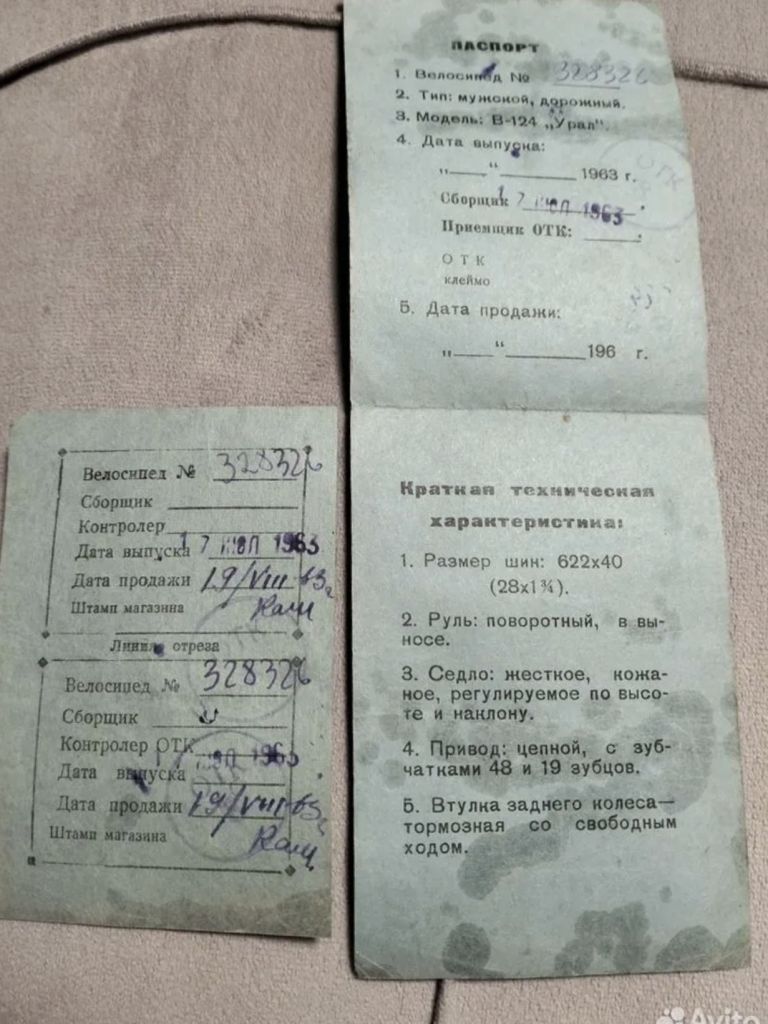 ПАСПОРТ
1. Велосипед № 328326
2. Тип: мужской, дорожный.
3. Модель: В-124 „Урал".
4. Дата выпуска:
„___"________1963 г.
Сборщик 17 ИЮЛ 1963
Приемщик ОТК: ____.
ОТК
клеймо
5. Дата продажи:
„___"________196 г.
ОТК
Краткая техническая
характеристика:
1. Размер шин: 622х40
(28х1¾).
2. Руль: поворотный, в вы-
носе.
3. Седло: жесткое, кожа-
ное, регулируемое по высо-
те и наклону.
4. Привод: цепной, с зуб-
чатками 48 и 19 зубцов.
5. Втулка заднего колеса—
тормозная со свободным
ходом.
Велосипед № 328326
Сборщик
Контролер
Дата выпуска 17 ИЮЛ 1963
Дата продажи 19/VIII-63г
Штамп магазина
Линия отреза
Велосипед № 328326
Сборщик
Контролер ОТК
Дата выпуска 17 ИЮЛ 1963
Дата продажи 19/VIII-63г
Штамп магазина
ОТК
Avito